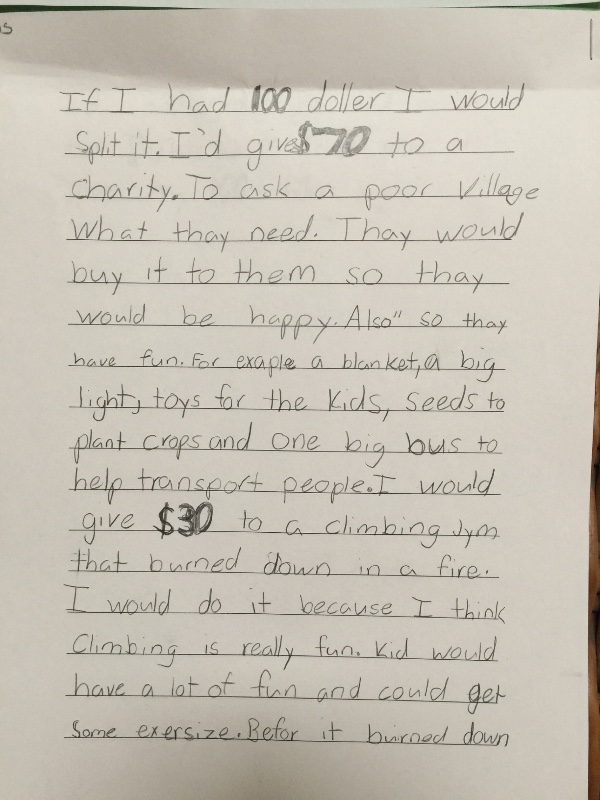 s
If I had 100 doller I would
Split it. I'd give $70 to a
Charity. To ask a poor Village
What thay need. Thay would
buy it to them so thay
would be happy. Also" so thay
have fun. For exaple a blanket, a big
light, toys for the Kids, Seeds to
plant crops and One big bus to
help transport people. I would
give $30 to a climbing Jym
that burned down in a fire.
I would do it because I think
Climbing is really fun. Kid would
have a lot of fun and could get
Some exersize. Befor it burned down